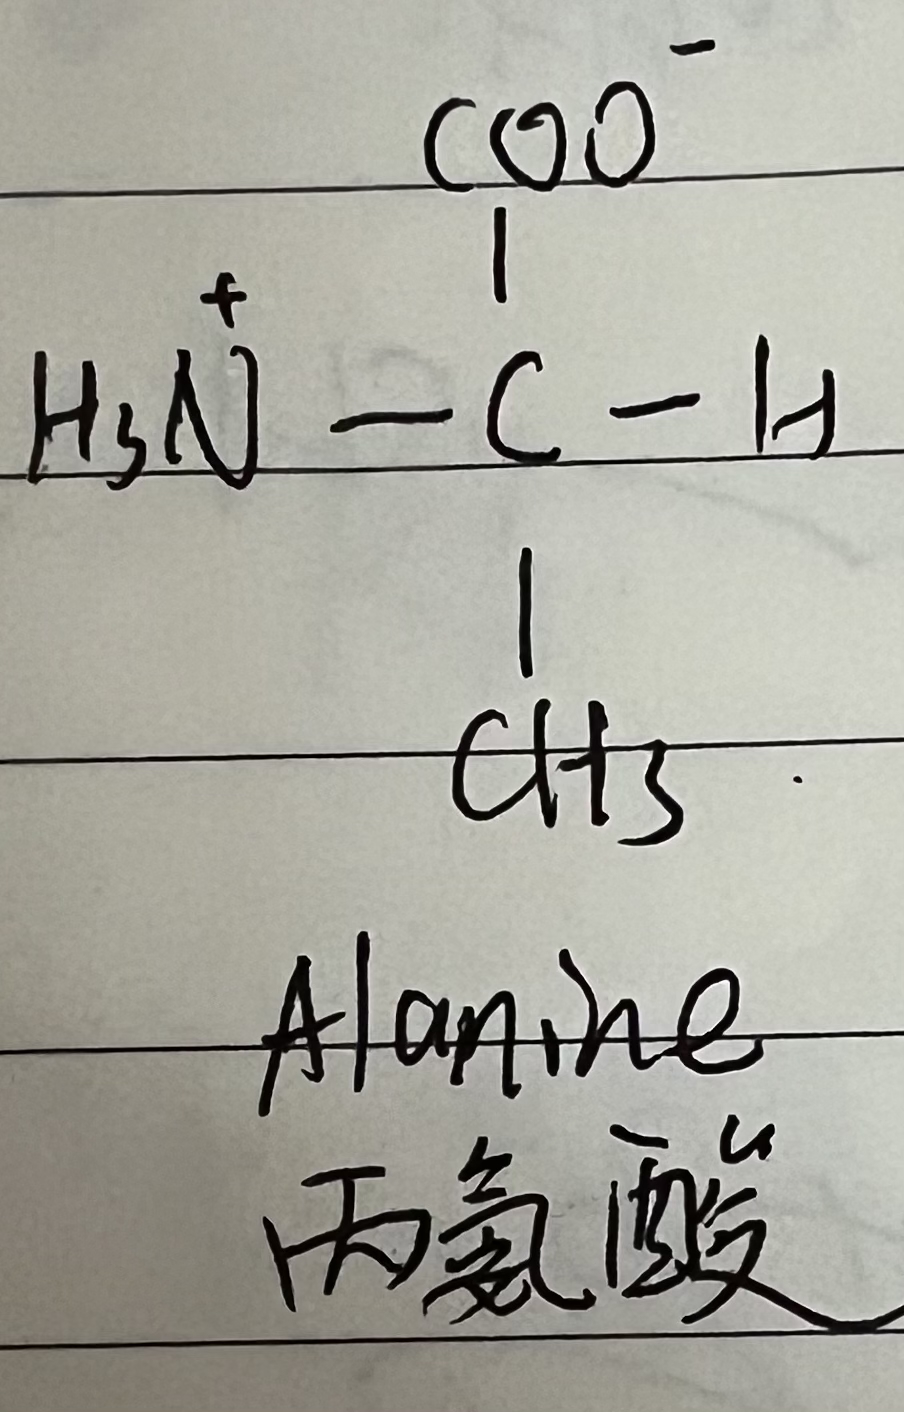 COO⁻
|
H₃N⁺ — C — H
|
CH₃
Alanine
丙氨酸